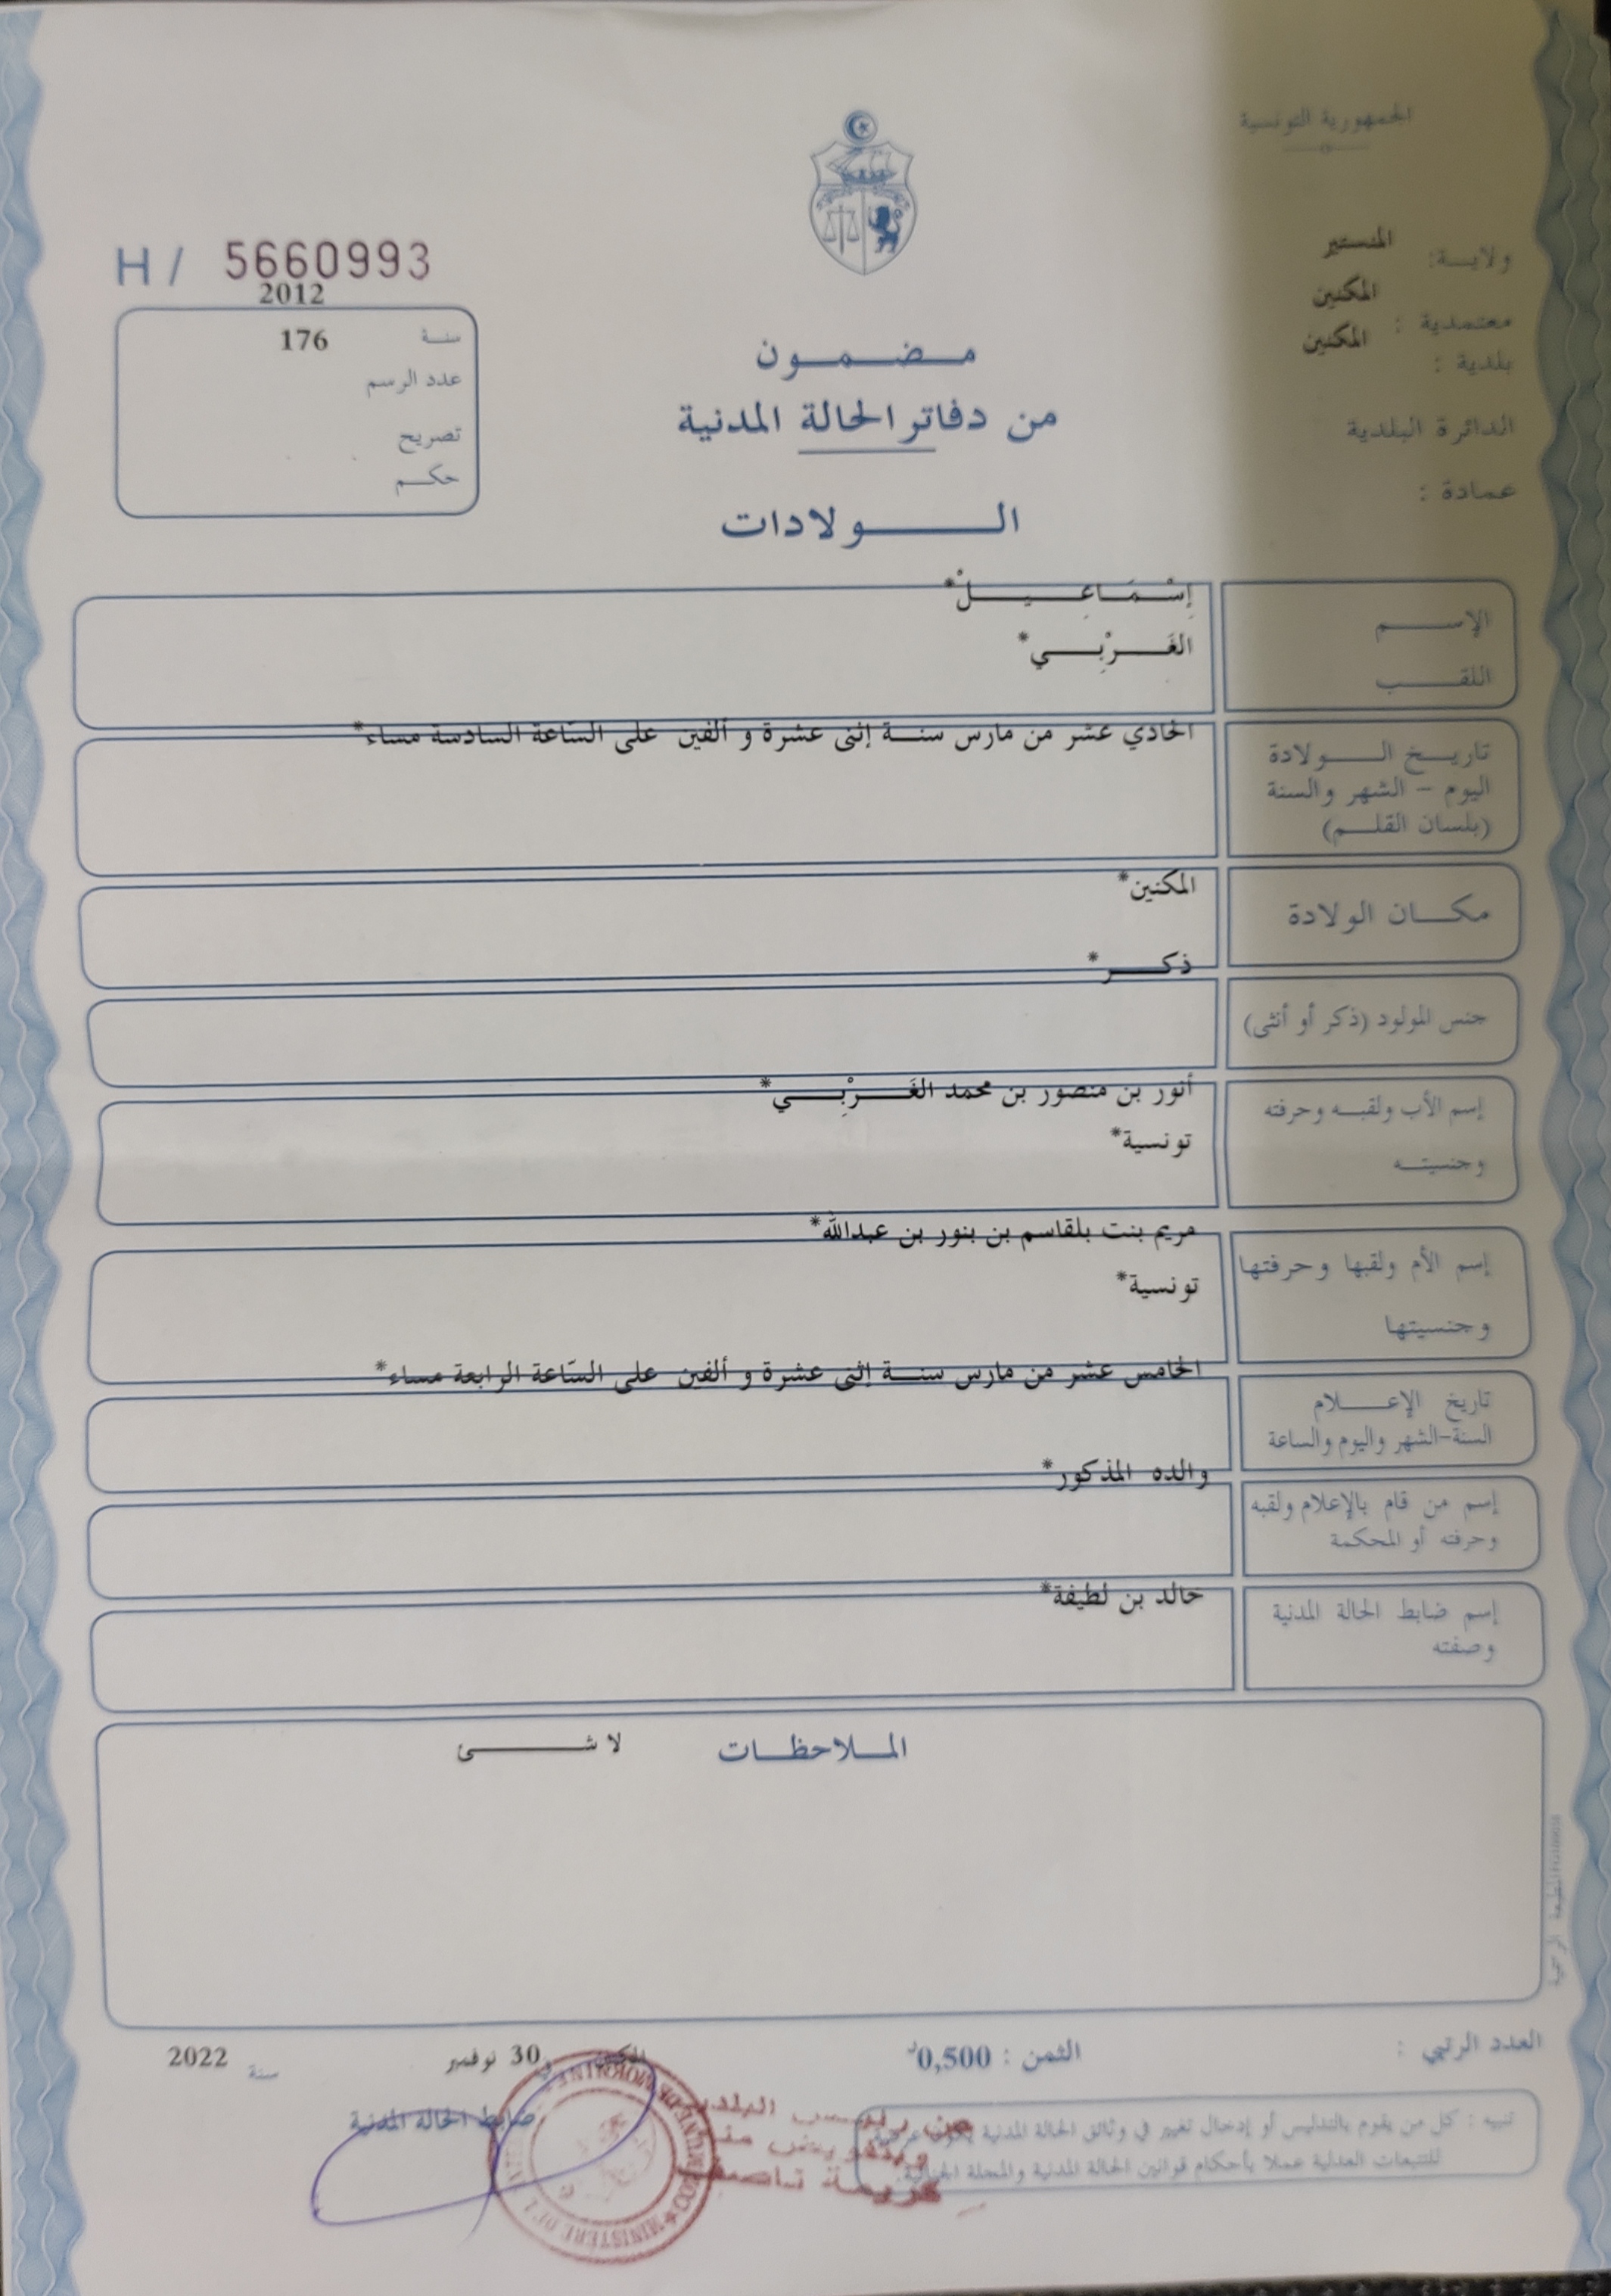 الجمهورية التونسية
ولايــة: المنستير
معتمدية : المكنين
بلدية : المكنين
الدائرة البلدية
عمادة :
H / 5660993
2012
سنة 176
عدد الرسم
تصريح
حكم
مضمون
من دفاتر الحالة المدنية
الولادات
الإسم إِسْمَاعِيلْ*
اللقب الغَرْبِي*
تاريخ الولادة الحادي عشر من مارس سنة إثنى عشرة و ألفين على السّاعة السادسة مساء*
اليوم - الشهر والسنة
(بلسان القلم)
مكان الولادة المكنين*
ذكر*
جنس المولود (ذكر أو أنثى)
إسم الأب ولقبه وحرفته أنور بن منصور بن محمد الغَرْبِي*
وجنسيته تونسية*
مريم بنت بلقاسم بن بنور بن عبدالله*
إسم الأم ولقبها وحرفتها
وجنسيتها تونسية*
الخامس عشر من مارس سنة إثنى عشرة و ألفين على السّاعة الرابعة مساء*
تاريخ الإعلام
السنة-الشهر واليوم والساعة
والده المذكور*
إسم من قام بالإعلام ولقبه
وحرفته أو المحكمة
خالد بن لطيفة*
إسم ضابط الحالة المدنية
وصفته
الملاحظات لا شئ
العدد الرتبي :
الثمن : 0,500د
المكنين في 30 نوفمبر سنة 2022
ضابط الحالة المدنية
تنبيه : كل من يقوم بالتدليس أو إدخال تغيير في وثائق الحالة المدنية يكون عرضة
للتتبعات العدلية عملا بأحكام قوانين الحالة المدنية والمجلة الجنائية.
المطبعة الرسمية